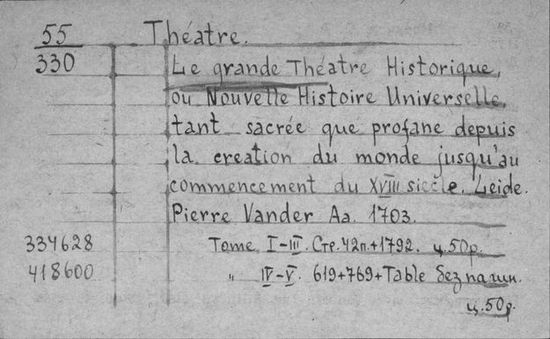 55 Théatre.
330 Le grande Théatre Historique,
ou Nouvelle Histoire Universelle,
tant sacrée que profane depuis
la creation du monde jusqu'au
commencement du XVIII siècle. Leide.
Pierre Vander Aa. 1703.
334628 Tome I-III. Стр. 42п.+1792. ц. 50р.
418600 " IV-V. 619+769+Table без пагин.
ц. 50р.